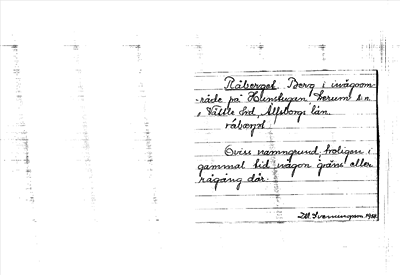 Råberget Berg i utägoom-
råde på Hunstugan, Lerum s:n
, Vättle hd, Älfsborgs län.
råbærjet
Oviss namngrund, troligen i
gammal tid någon gräns eller
rågång där.
1918